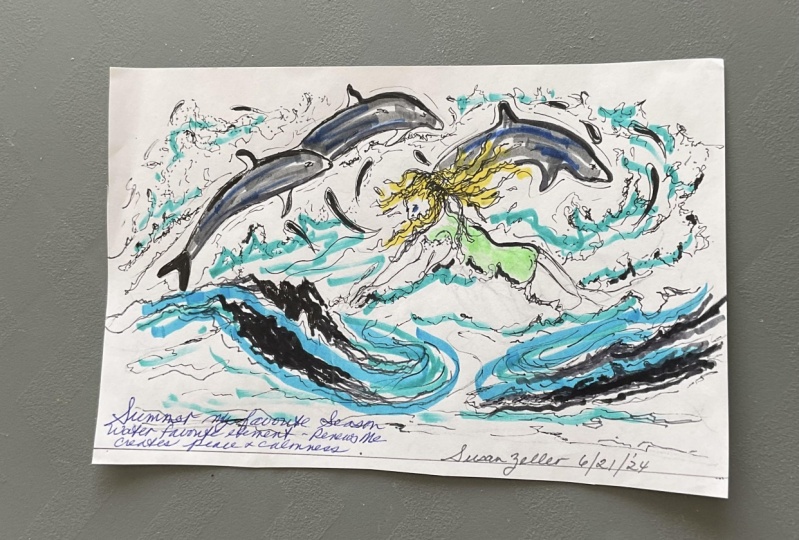 Summer my favorite Season
Water favorite element - Renews Me
creates peace & calmness.
Susan Zeller 6/21/'24